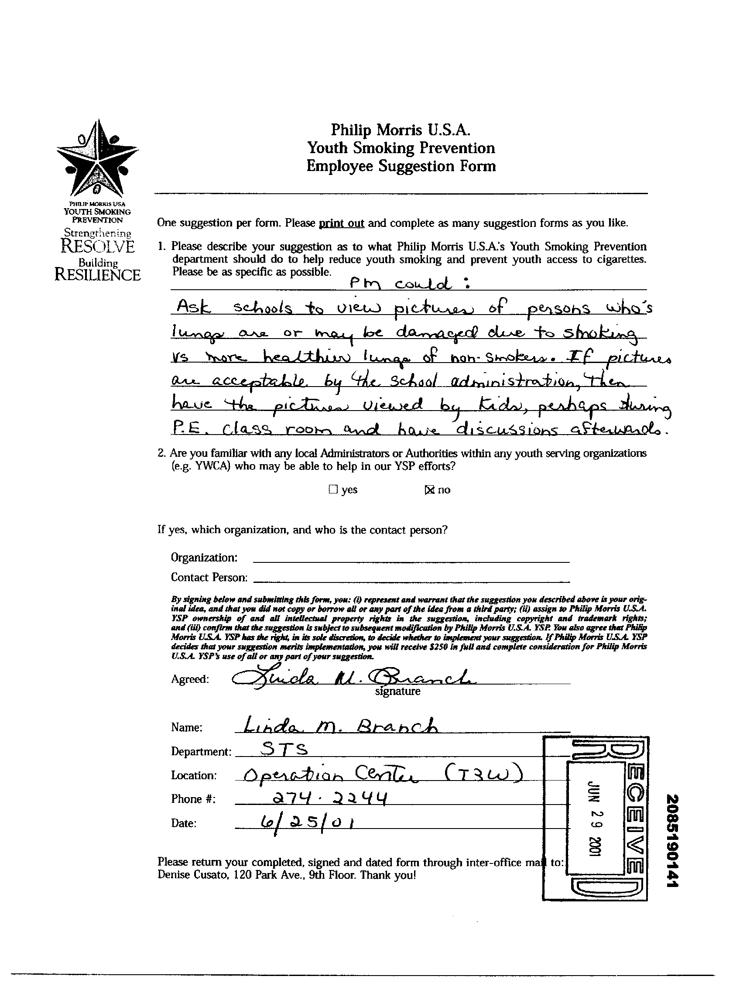 Philip Morris U.S.A.
Youth Smoking Prevention
Employee Suggestion Form
PHILIP MORRIS USA
YOUTH SMOKING
PREVENTION
Strengthening
RESOLVE
Building
RESILIENCE
One suggestion per form. Please print out and complete as many suggestion forms as you like.
1. Please describe your suggestion as to what Philip Morris U.S.A.'s Youth Smoking Prevention
department should do to help reduce youth smoking and prevent youth access to cigarettes.
Please be as specific as possible.
PM could:
Ask schools to view pictures of persons who's
lungs are or may be damaged due to smoking
vs more healthier lungs of non-smokers. If pictures
are acceptable by the school administration, then
have the pictures viewed by kids, perhaps during
P.E. class room and have discussions afterwards.
2. Are you familiar with any local Administrators or Authorities within any youth serving organizations
(e.g. YWCA) who may be able to help in our YSP efforts?
☐ yes ☒ no
If yes, which organization, and who is the contact person?
Organization:
Contact Person:
By signing below and submitting this form, you: (i) represent and warrant that the suggestion you described above is your orig-
inal idea, and that you did not copy or borrow all or any part of the idea from a third party; (ii) assign to Philip Morris U.S.A.
YSP ownership of and all intellectual property rights in the suggestion, including copyright and trademark rights;
and (iii) confirm that the suggestion is subject to subsequent modification by Philip Morris U.S.A. YSP. You also agree that Philip
Morris U.S.A. YSP has the right, in its sole discretion, to decide whether to implement your suggestion. If Philip Morris U.S.A. YSP
decides that your suggestion merits implementation, you will receive $250 in full and complete consideration for Philip Morris
U.S.A. YSP's use of all or any part of your suggestion.
Agreed: Linda M. Branch
signature
Name: Linda M. Branch
Department: STS
Location: Operation Center (T3W)
Phone #: 274-2244
Date: 6/25/01
RECEIVED
JUN 29 2001
2085190141
Please return your completed, signed and dated form through inter-office mail to:
Denise Cusato, 120 Park Ave., 9th Floor. Thank you!